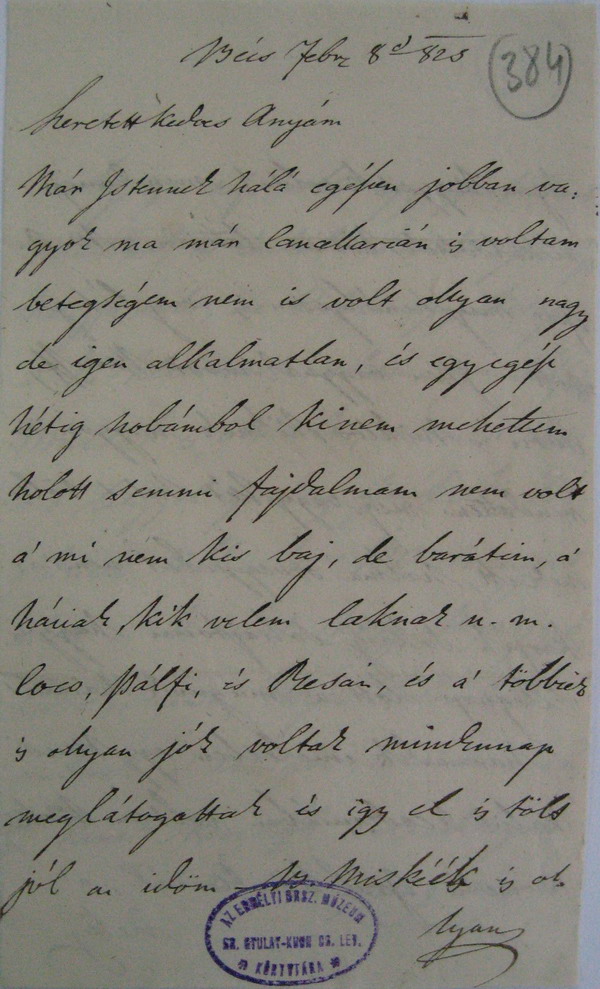 Bécs Febr 8d 825
384
Szeretett kedves Anyám
Már Istennek hálá egészen jobban va:
gyok ma már is voltam
betegségem nem is volt ollyan nagy
de igen alkalmatlan, és egy egész
hétig hobámbol kinem mehettem
holott semmi fájdalmam nem volt
á mi nem kis baj, de barátim, á
kik velem laknak n. m.
loco, Pálfi, és és á többiek
is ollyan jók voltak mindennap
meglátogattak és így el is tölt
jól az időm is ol
lyan
AZ ERDÉLYI ORSZ. MÚZEUM
GR. GYULAY-KUUN CS. LEV.
KÉZIRATTÁRA